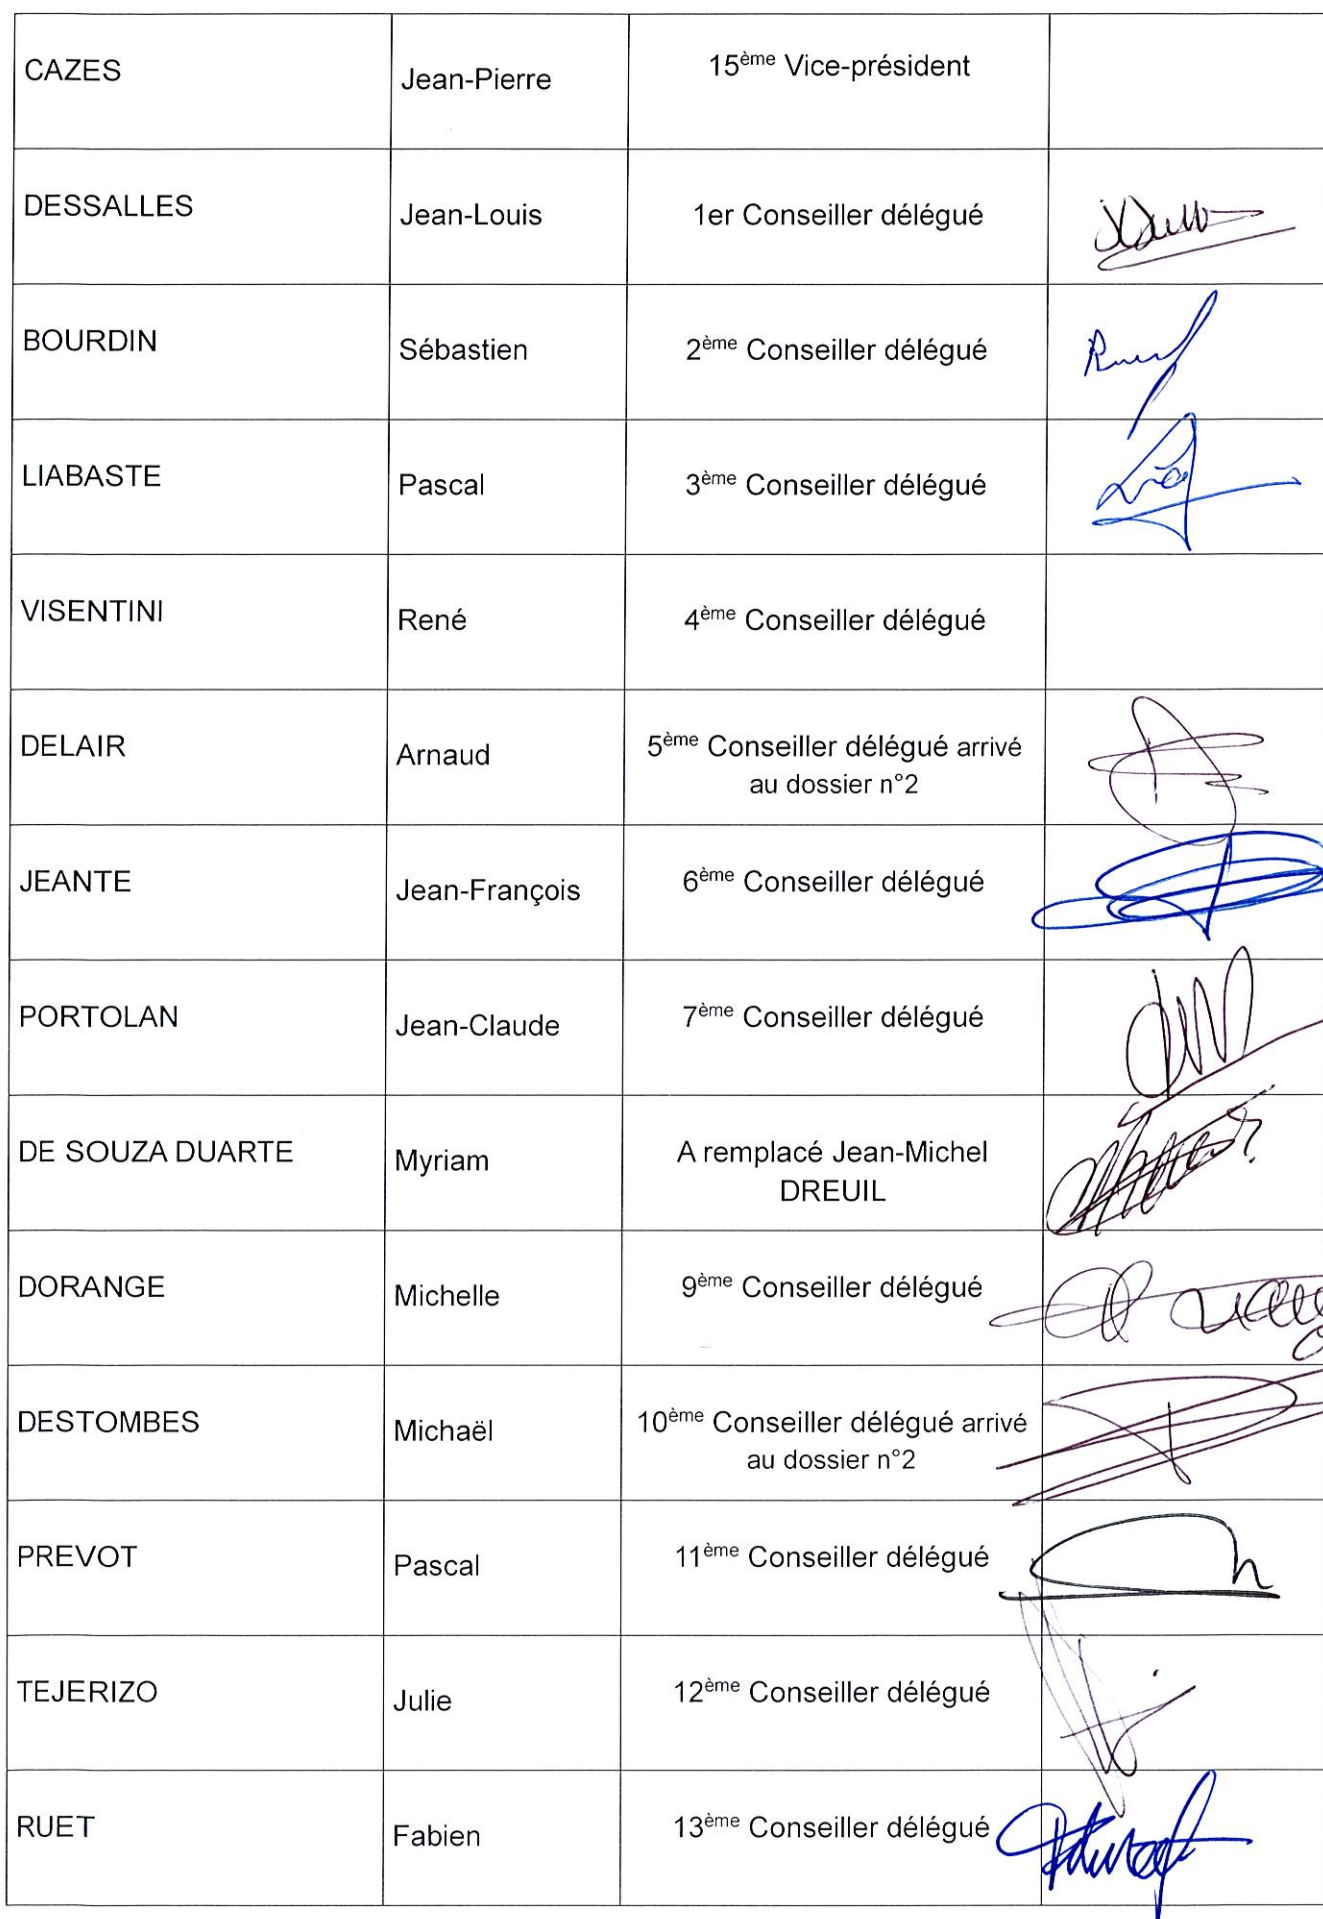 CAZES Jean-Pierre 15ème Vice-président
DESSALLES Jean-Louis 1er Conseiller délégué
BOURDIN Sébastien 2ème Conseiller délégué
LIABASTE Pascal 3ème Conseiller délégué
VISENTINI René 4ème Conseiller délégué
DELAIR Arnaud 5ème Conseiller délégué arrivé
au dossier n°2
JEANTE Jean-François 6ème Conseiller délégué
PORTOLAN Jean-Claude 7ème Conseiller délégué
DE SOUZA DUARTE Myriam A remplacé Jean-Michel
DREUIL
DORANGE Michelle 9ème Conseiller délégué
DESTOMBES Michaël 10ème Conseiller délégué arrivé
au dossier n°2
PREVOT Pascal 11ème Conseiller délégué
TEJERIZO Julie 12ème Conseiller délégué
RUET Fabien 13ème Conseiller délégué